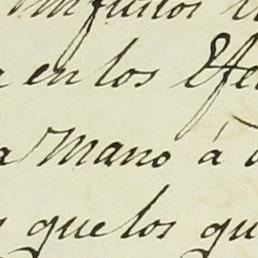 en los Efe
Mano á
que los qu